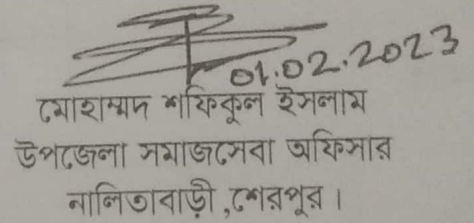 01.02.2023
মোহাম্মদ শফিকুল ইসলাম
উপজেলা সমাজসেবা অফিসার
নালিতাবাড়ী, শেরপুর।